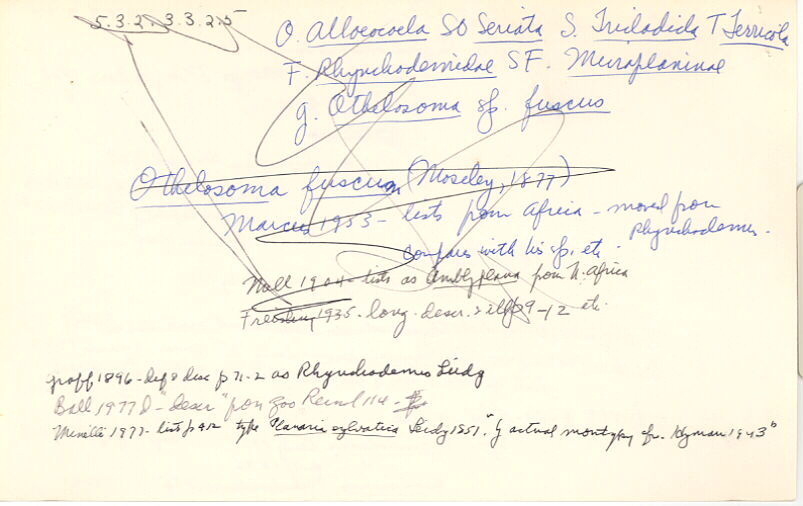 5.3.2.3.3.2.5
O. Alloeocoela SO Seriata S. Tricladida T Terricola
F. Rhynchodemidae SF. Microplaninae
g. Othelosoma sp. fuscus
Othelosoma fuscum (Moseley, 1877)
Marcus 1953 - lists from Africa - moved from
Rhynchodemus.
compares with his sp. etc.
1904 - lists as Amblyplana from N. Africa
1935 - long descr. & ills p 9-12 etc.
Graff 1896 - def & desc p 71-2 as Rhynchodemus Leidy
Ball 1977 D - "descr" from Zoo Reinl 114 -
1977 - lists p 412 type Planaria sylvatica Leidy 1851. "by actual monotypy cfr. Hyman 1943"